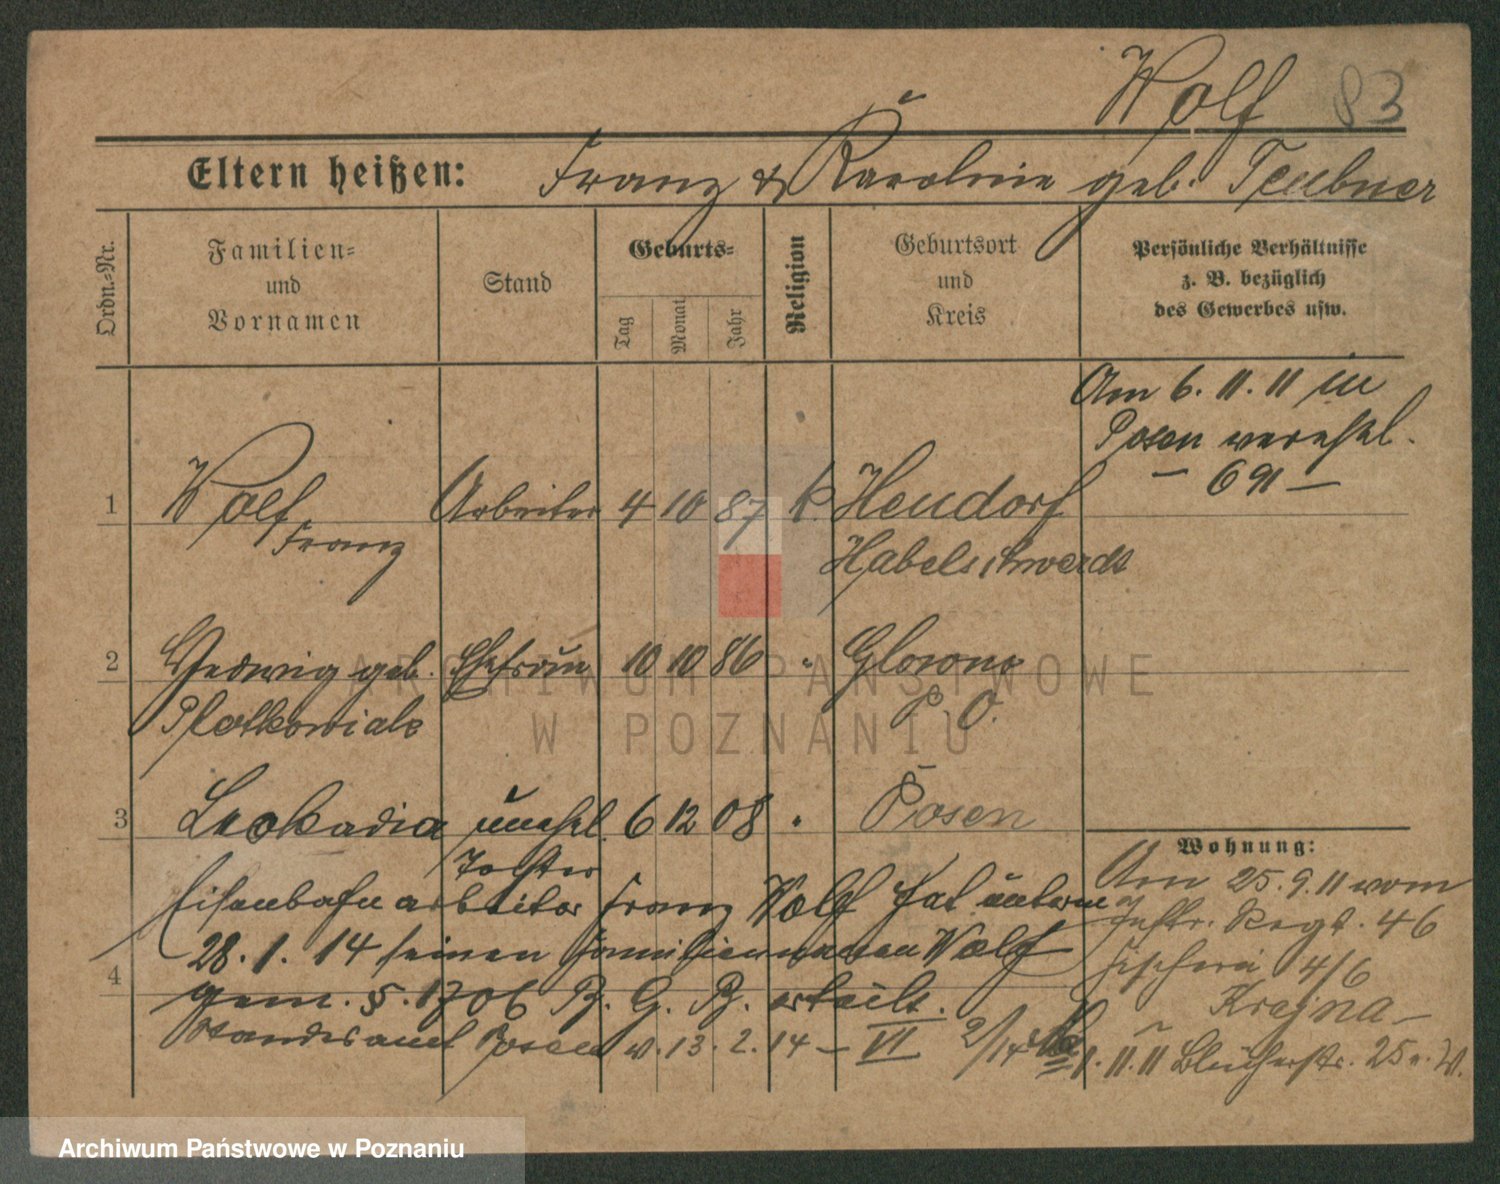 Wolf 83
Eltern heißen: Franz & Karoline geb. Teubner
Ordn.-Nr.
Familien-
und
Vornamen
Stand
Geburts-
Tag
Monat
Jahr
Religion
Geburtsort
und
Kreis
Persönliche Verhältnisse
z. B. bezüglich
des Gewerbes usw.
Am 6. 11. 11 in
Posen verehel.
— 691 —
1 Wolf Arbeiter 4 10 87 k. Heudorf
Franz Habelschwerdt
2 Hedwig geb. Ehefrau 10 10 86 " Glowno
Plotkowiak P. O.
3 Leokadia unehel. 6 12 08 " Posen
Tochter
Eisenbahnarbeiter Franz Wolf hat unterm
28. 1. 14 seinen Familiennamen Wolf
4
gem. §. 1706 B. G. B. erteilt.
Standesamt Posen v. 13. 2. 14 — VI 2/14
Wohnung:
Am 25. 9. 11 vom
Inftr. Regt. 46
Fischerei 4/6
Krajna —
1. 11. 11 Blücherstr. 25 b. W.
ARCHIWUM PAŃSTWOWE
W POZNANIU
Archiwum Państwowe w Poznaniu